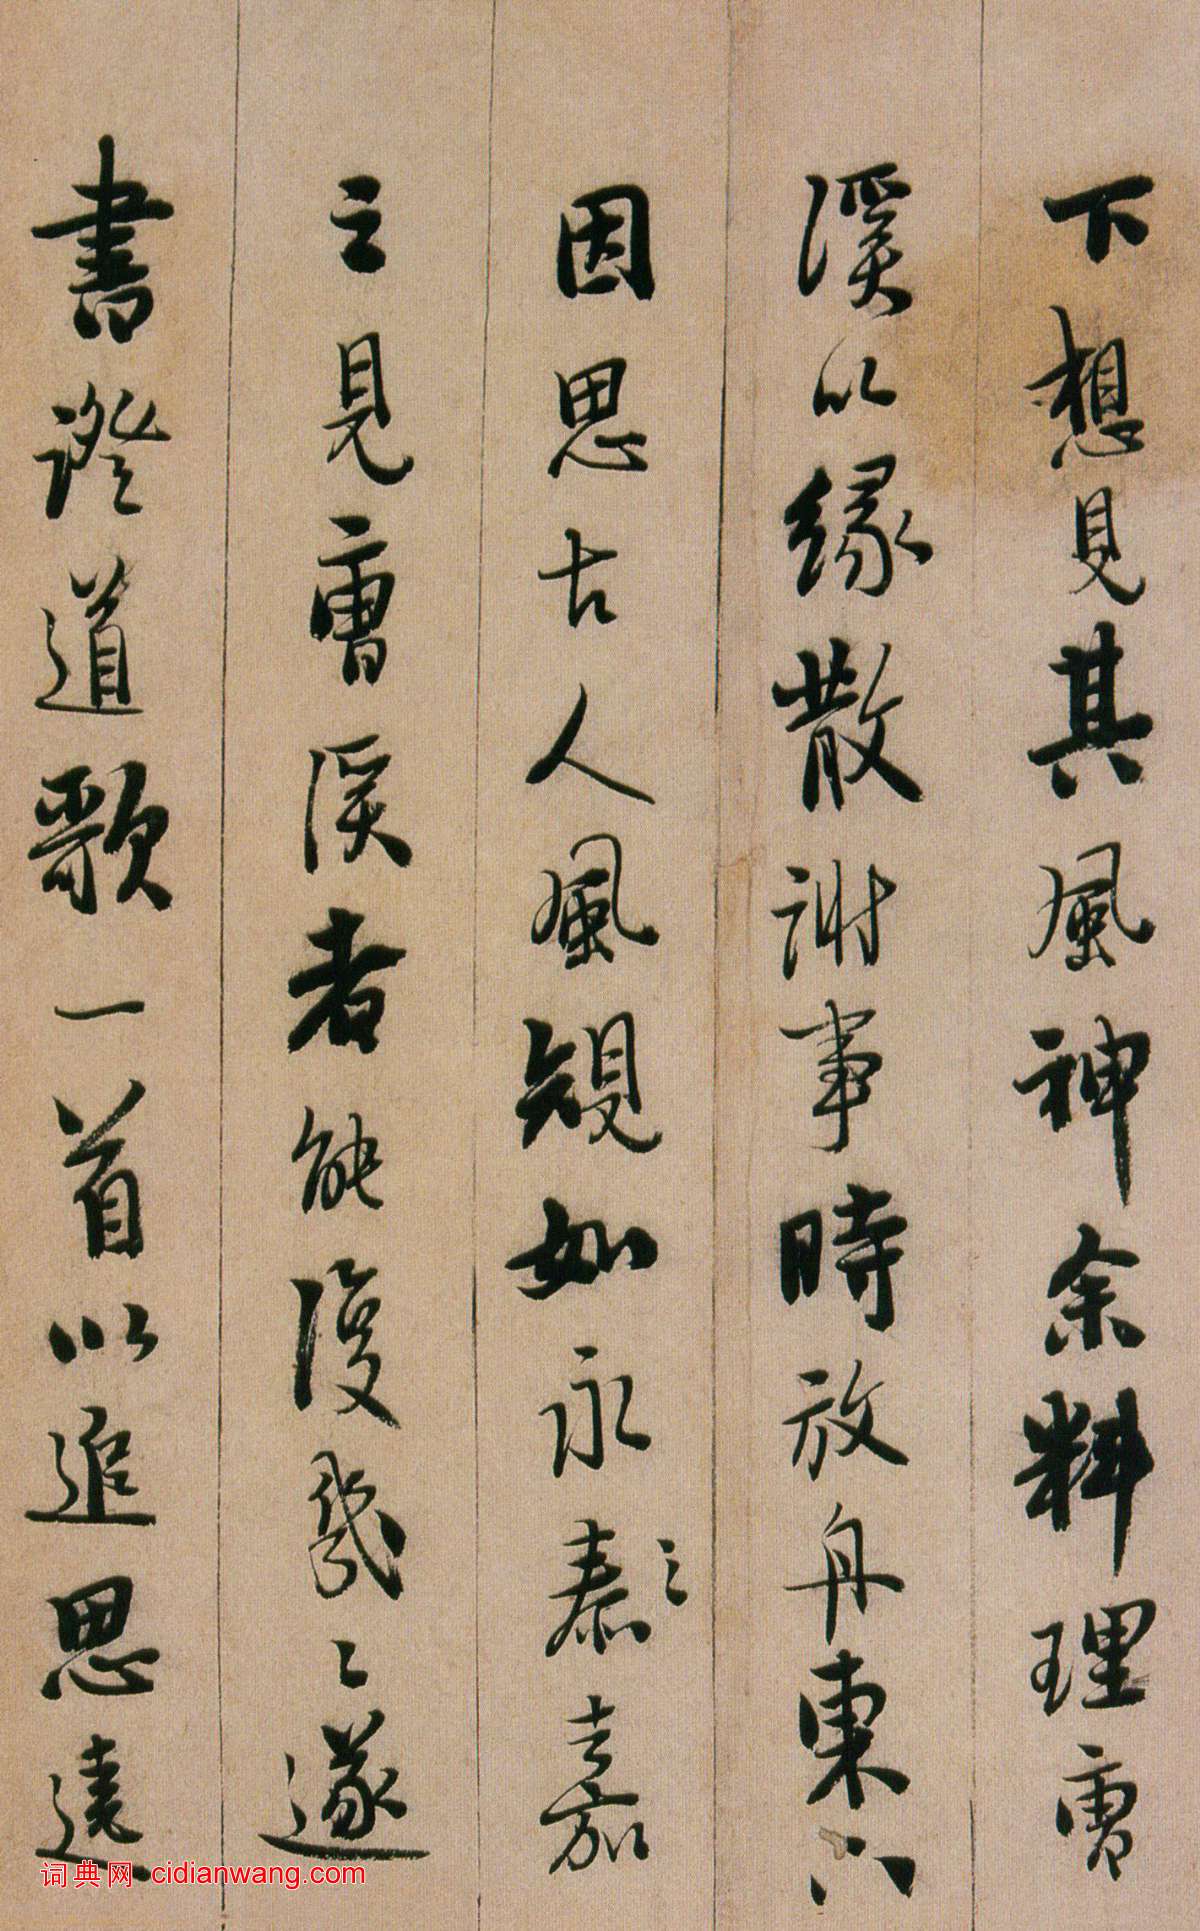 下想見其風神余料理曹
溪以緣散謝事時放舟東下
因思古人風規如永泰之嘉
之見曹溪者能復幾〻遂
書證道歌一首以追思遠
词典网 cidianwang.com